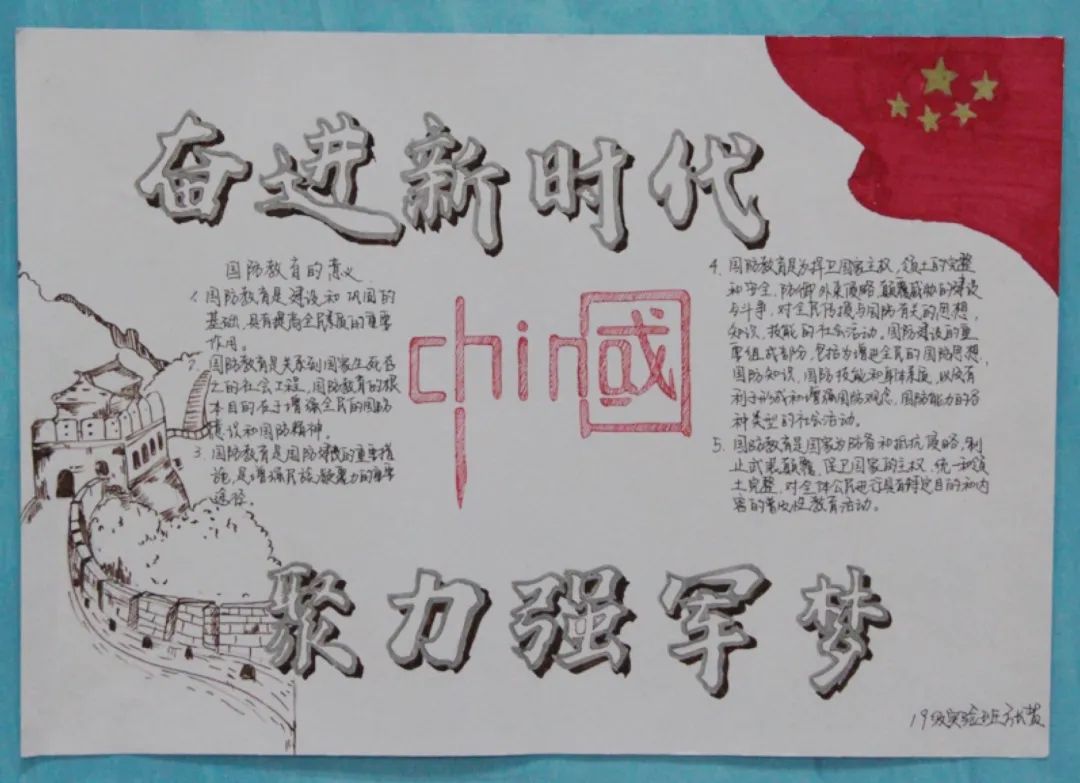 奋进新时代
国防教育的意义
1. 国防教育是建设和巩固国的
基础，具有提高全民素质的重要
作用。
2. 国防教育是关系到国家生死存
亡的社会工程，国防教育的根
本目的在于增强全民的国防
意识和国防精神。
3. 国防教育是国防建设的重要措
施，是增强民族凝聚力的重要
途径。
china
國
4. 国防教育是为捍卫国家主权，领土的完整
和安全，防御外来侵略，颠覆威胁的建设
与斗争，对全民防授与国防有关的思想，
知识，技能的社会活动。国防建设的重
要组成部分，包括为增进全民的国防思想，
国防知识，国防技能和身体素质，以及有
利于形成和增强国防观念，国防能力的各
种类型的社会活动。
5. 国防教育是国家为防备和抵抗侵略，制
止武装颠覆，保卫国家的主权，统一和领
土完整，对全体公民进行具有特定目的和内
容的普及性教育活动。
聚力强军梦
19级实验班